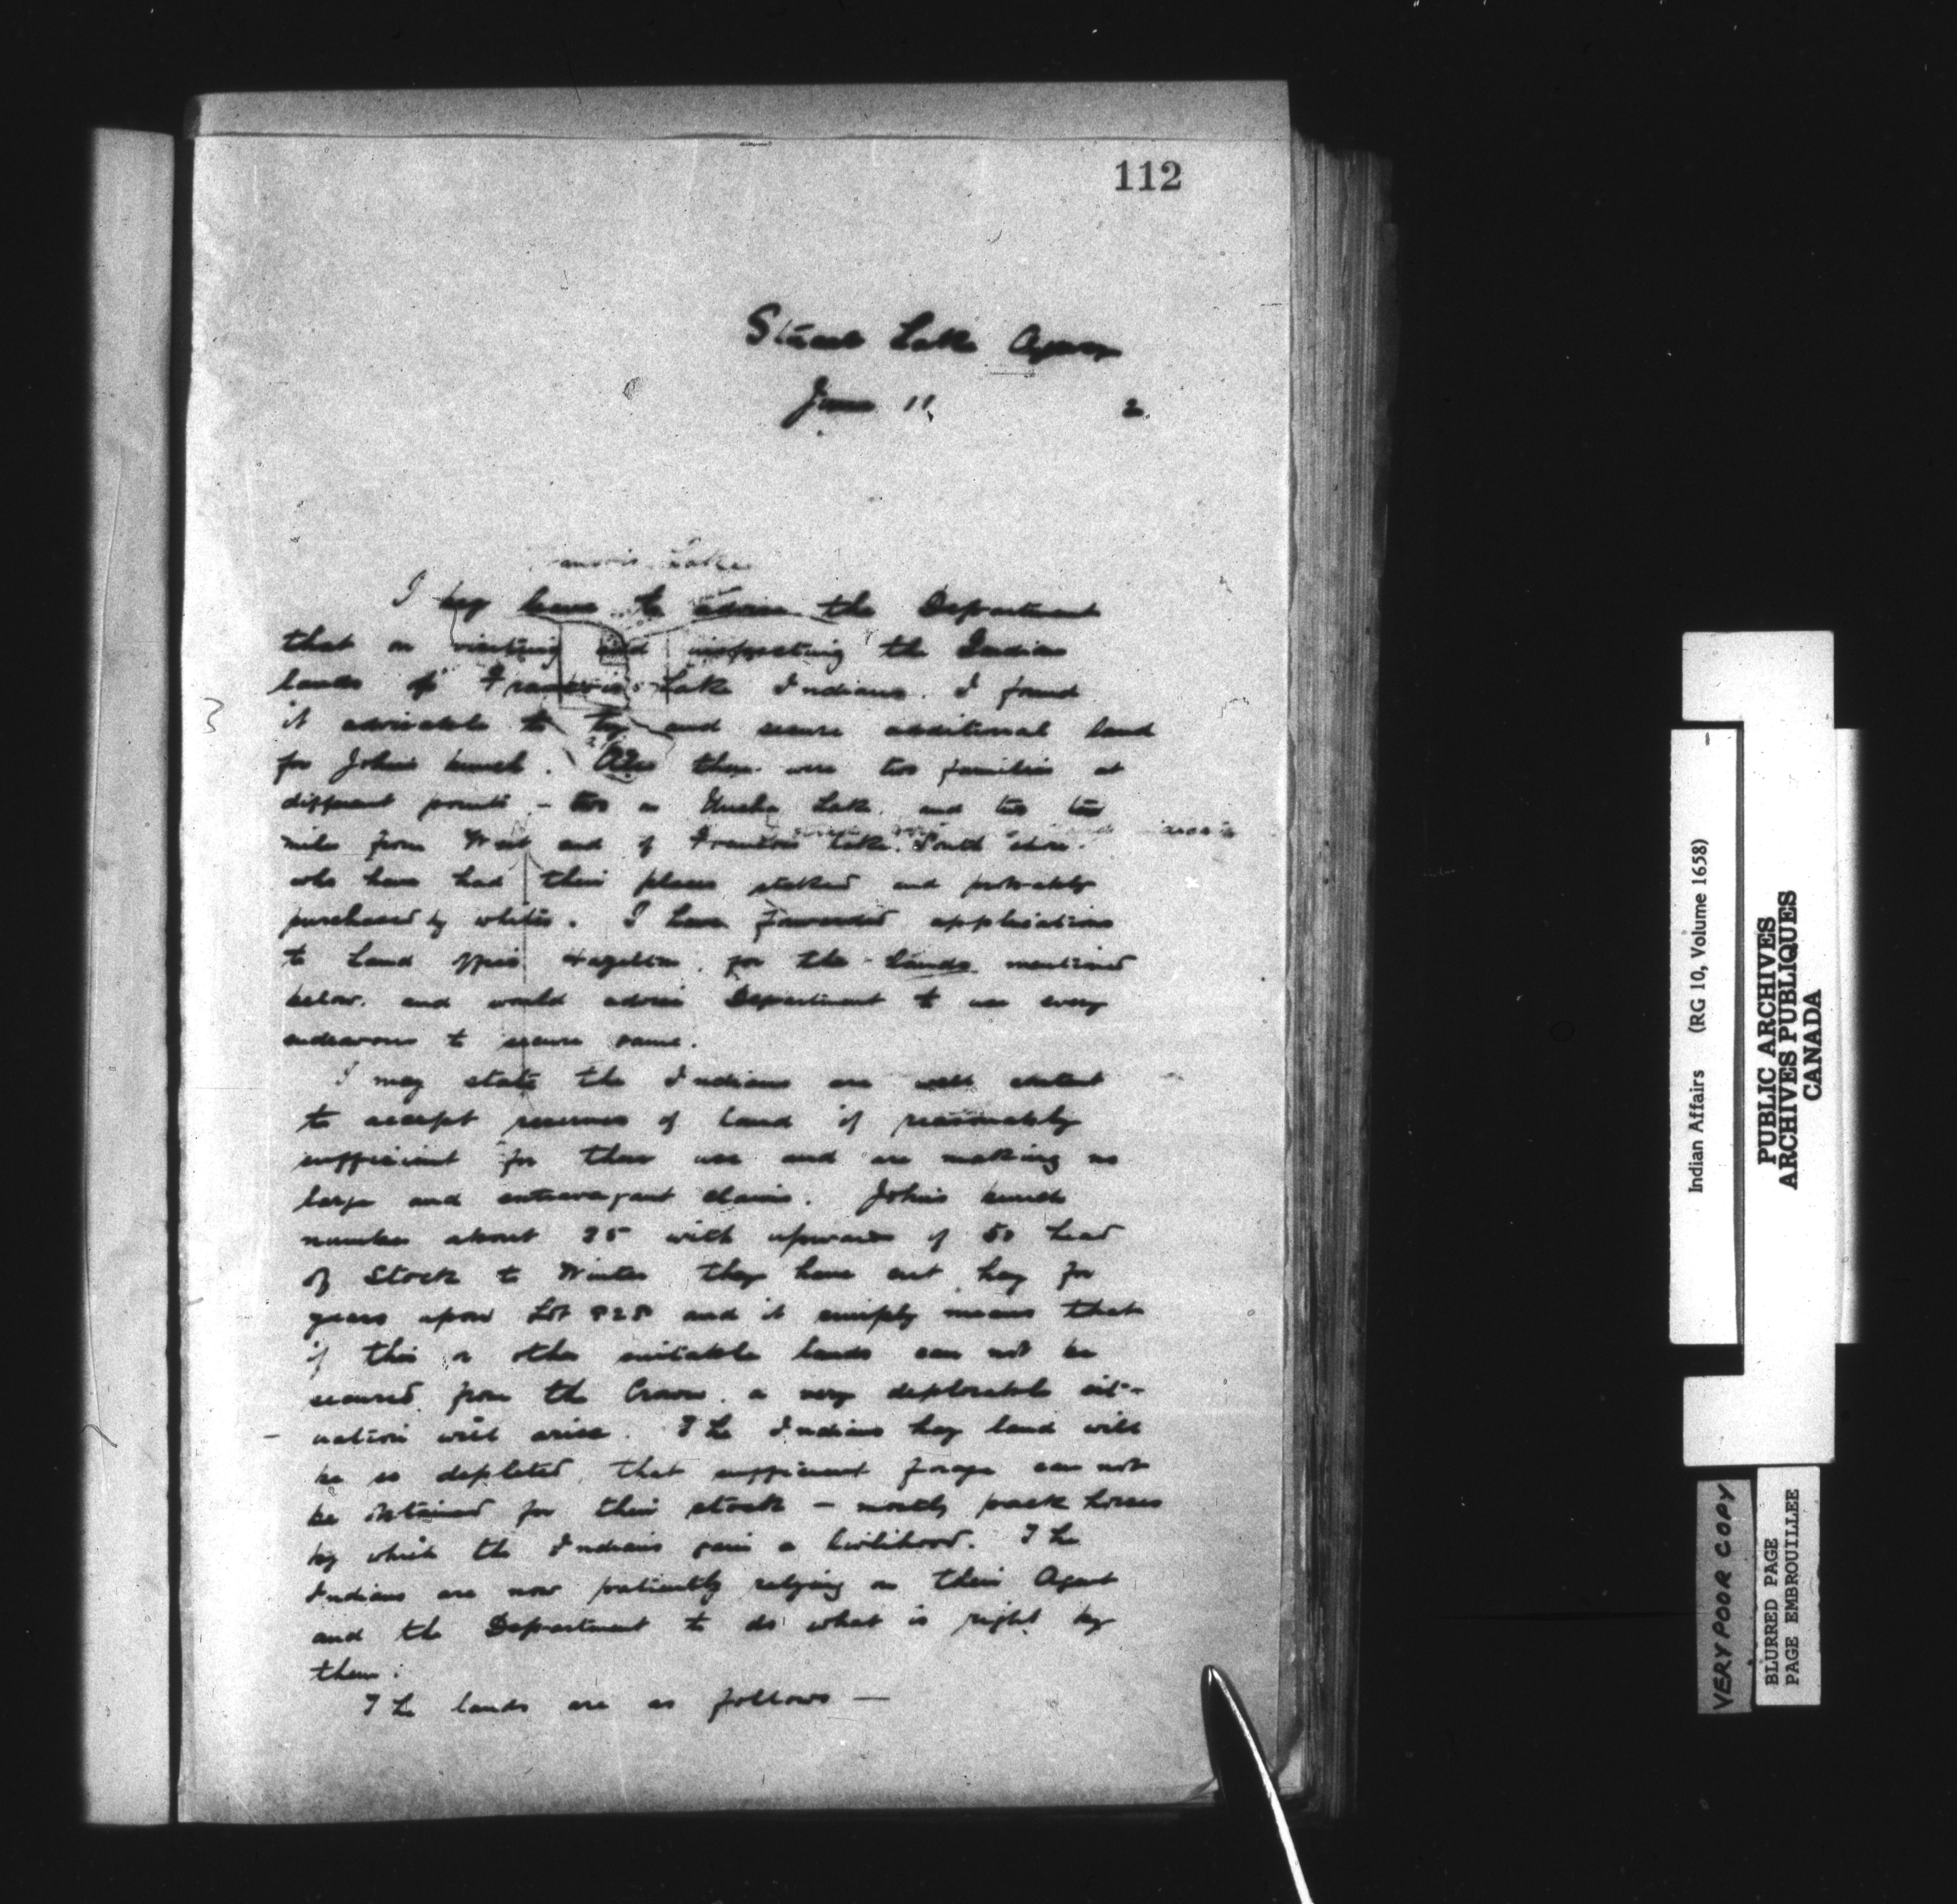 112
Stuart Lake Agency
June 11, 2
Lake
I beg leave to advise the Department
that on visiting and inspecting the Indian
lands of Francois Lake Indians. I found
it advisable to try and secure additional land
for John's bunch. Also there were two families at
different points - two on Lake and two
miles from West end of Francois Lake South shore.
who have had their places staked and probably
purchased by whites. I have forwarded applications
to Land Office Hazelton for the lands mentioned
below. and would advise Department to use every
endeavour to secure same.
I may state the Indians are well content
to accept reserves of land if reasonably
sufficient for their use and are making no
large and extravagant claims. John's bunch
number about 35 with upwards of 50 head
of Stock to Winter they have cut hay for
years upon Lot 828 and it simply means that
if this or other suitable lands can not be
secured from the Crown. a very deplorable sit-
uation will arise. The Indians hay land will
be so depleted, that sufficient forage can not
be obtained for their stock - mostly pack horses
by which the Indians gain a livlihood. The
Indians are now patiently relying on their Agent
and the Department to do what is right by
them.
The lands are as follows —
Indian Affairs (RG 10, Volume 1658)
PUBLIC ARCHIVES
ARCHIVES PUBLIQUES
CANADA
VERY POOR COPY
BLURRED PAGE
PAGE EMBROUILLEE